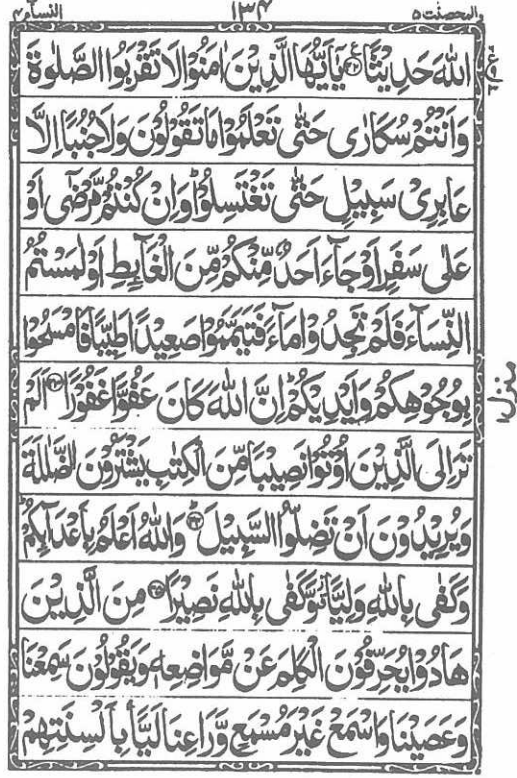 والمحصنت ۵ ۱۳۴ النسآء ۴
اللهَ حَدِيْثًا ﴿۴۲﴾ يٰٓاَيُّهَا الَّذِيْنَ اٰمَنُوْا لَا تَقْرَبُوا الصَّلٰوةَ
وَاَنْتُمْ سُكَارٰى حَتّٰى تَعْلَمُوْا مَا تَقُوْلُوْنَ وَلَا جُنُبًا اِلَّا
عَابِرِيْ سَبِيْلٍ حَتّٰى تَغْتَسِلُوْا ؕ وَاِنْ كُنْتُمْ مَّرْضٰٓى اَوْ
عَلٰى سَفَرٍ اَوْ جَآءَ اَحَدٌ مِّنْكُمْ مِّنَ الْغَآىِٕطِ اَوْ لٰمَسْتُمُ
النِّسَآءَ فَلَمْ تَجِدُوْا مَآءً فَتَيَمَّمُوْا صَعِيْدًا طَيِّبًا فَامْسَحُوْا
بِوُجُوْهِكُمْ وَاَيْدِيْكُمْ ؕ اِنَّ اللهَ كَانَ عَفُوًّا غَفُوْرًا ﴿۴۳﴾ اَلَمْ
تَرَ اِلَى الَّذِيْنَ اُوْتُوْا نَصِيْبًا مِّنَ الْكِتٰبِ يَشْتَرُوْنَ الضَّلٰلَةَ
وَيُرِيْدُوْنَ اَنْ تَضِلُّوا السَّبِيْلَ ﴿۴۴﴾ؕ وَاللهُ اَعْلَمُ بِاَعْدَآىِٕكُمْ ؕ
وَكَفٰى بِاللهِ وَلِيًّا ؗۙ وَّكَفٰى بِاللهِ نَصِيْرًا ﴿۴۵﴾ مِنَ الَّذِيْنَ
هَادُوْا يُحَرِّفُوْنَ الْكَلِمَ عَنْ مَّوَاضِعِهٖ وَيَقُوْلُوْنَ سَمِعْنَا
وَعَصَيْنَا وَاسْمَعْ غَيْرَ مُسْمَعٍ وَّرَاعِنَا لَيًّۢا بِاَلْسِنَتِهِمْ
منزل ۱